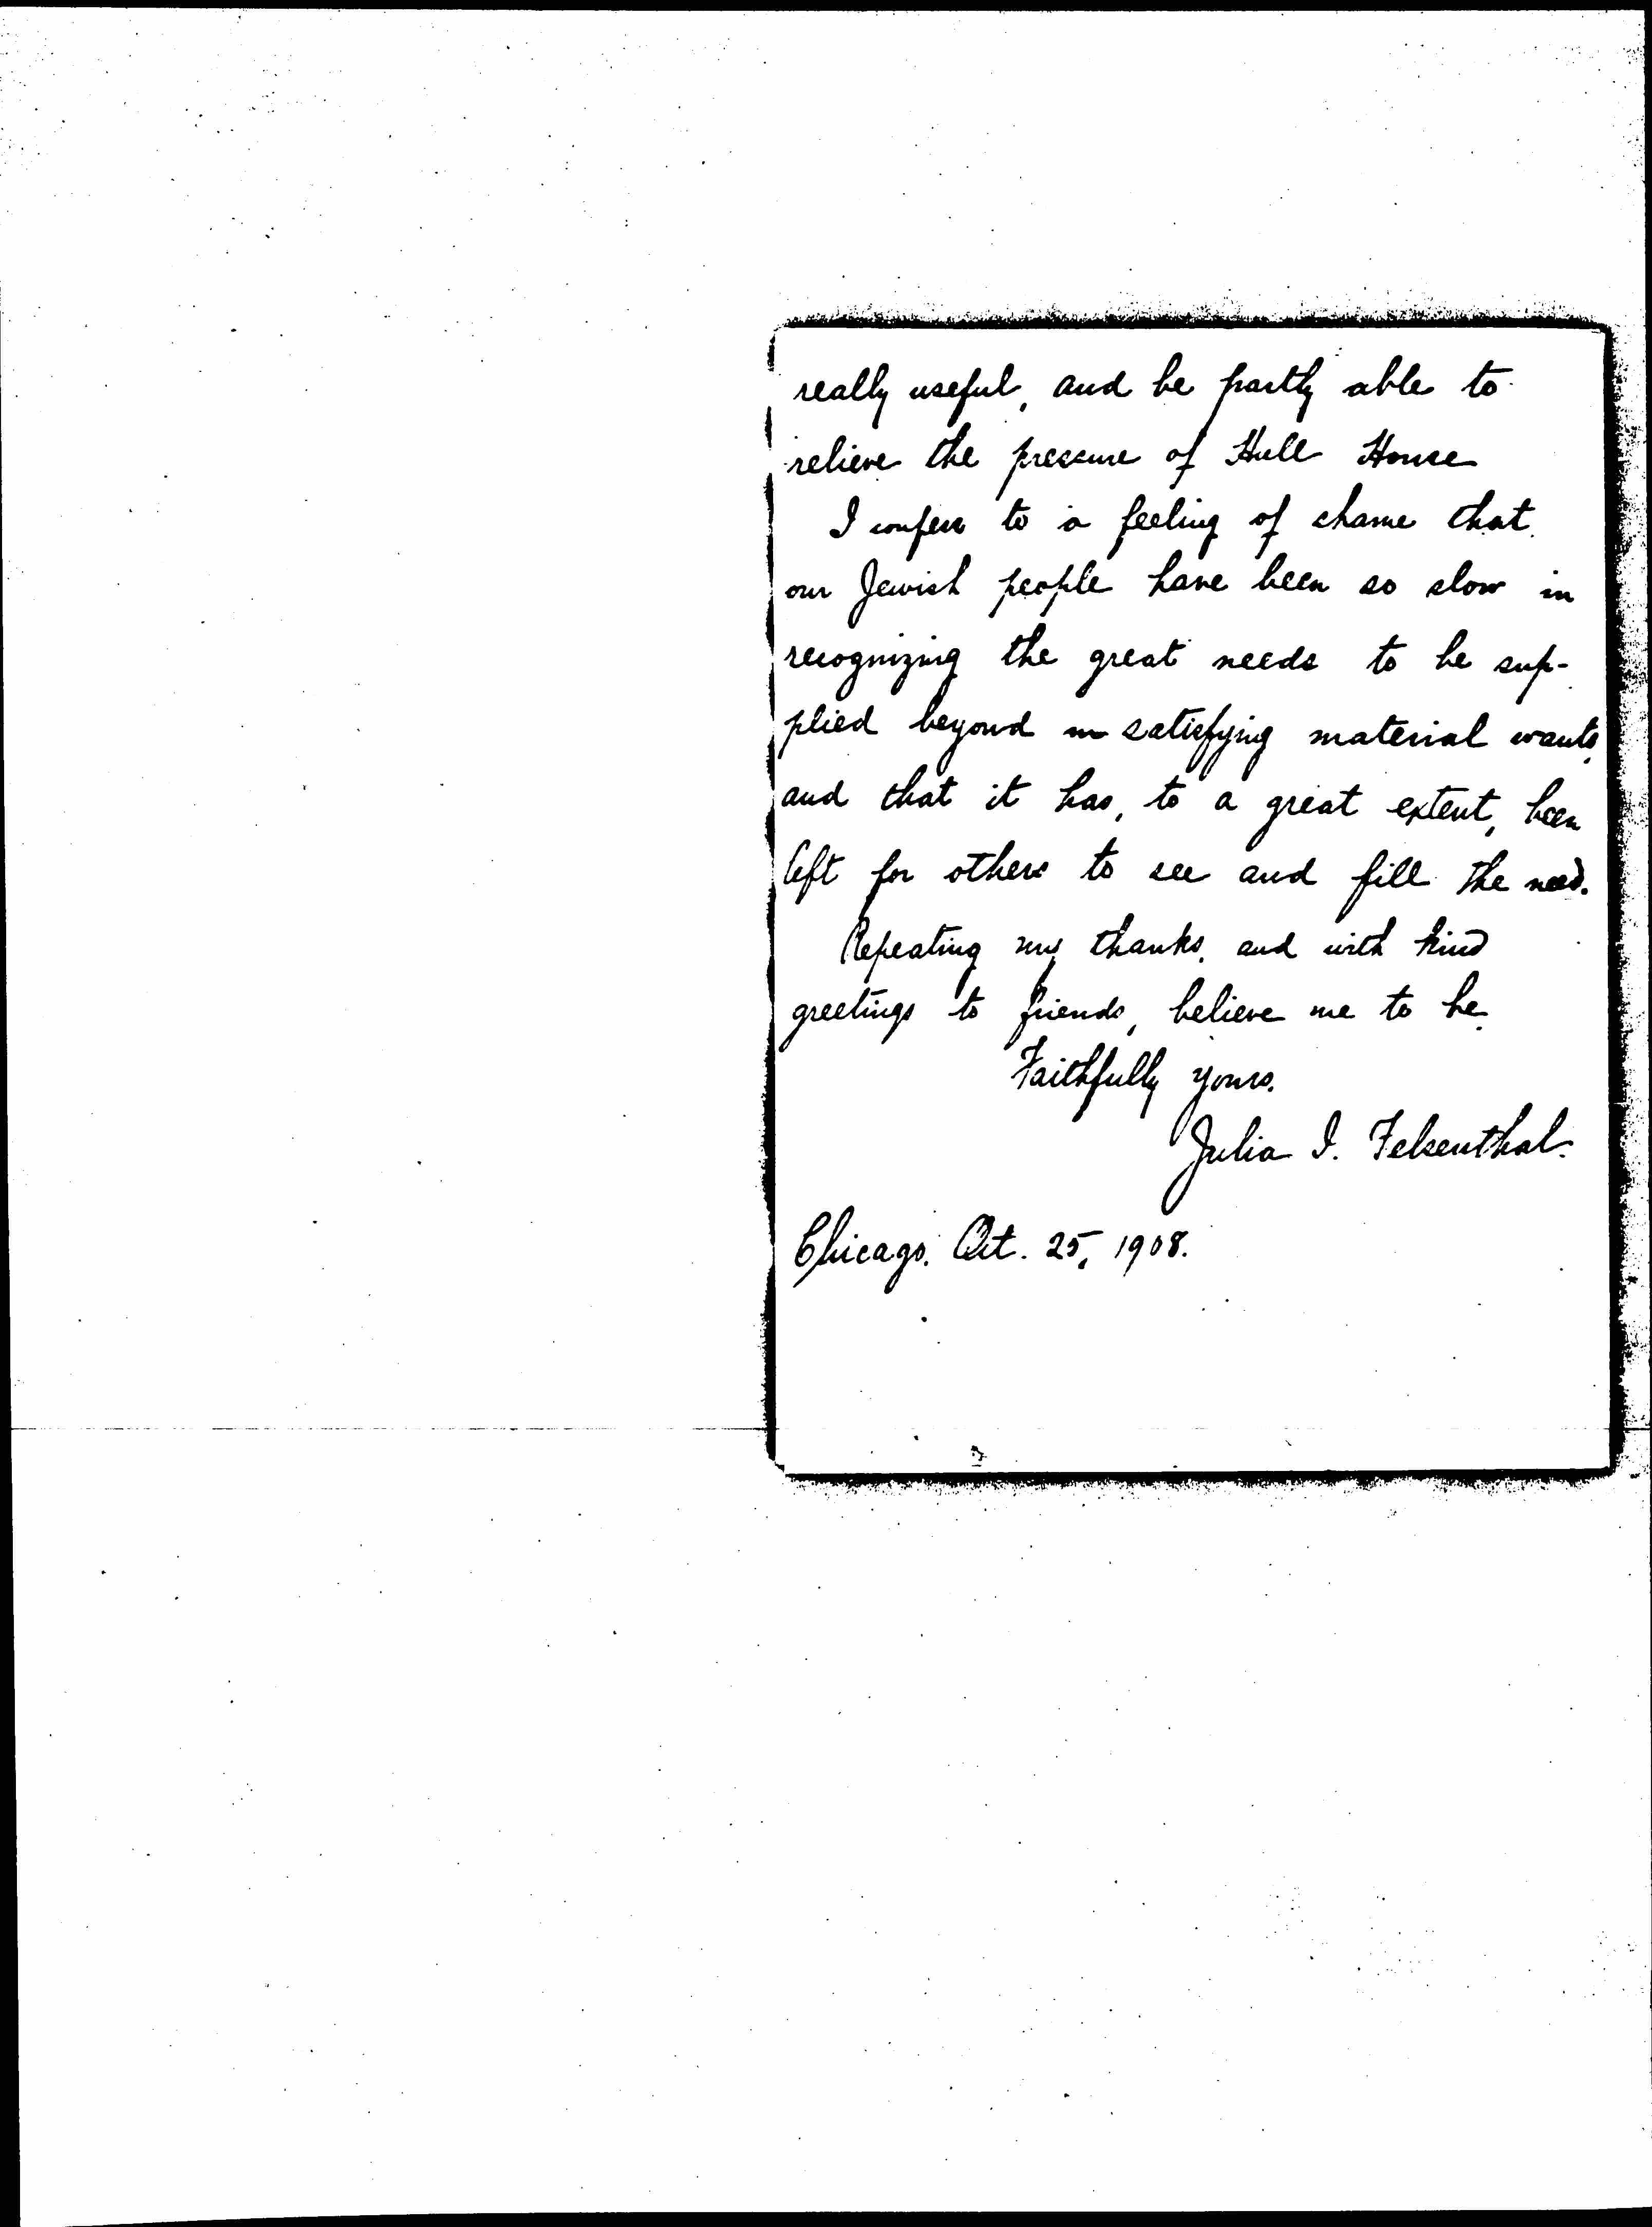 really useful, and be partly able to
relieve the pressure of Hull House
I confess to a feeling of shame that
our Jewish people have been so slow in
recognizing the great needs to be sup-
plied beyond satisfying material wants,
and that it has, to a great extent, been
left for others to see and fill the need.
Repeating my thanks, and with kind
greetings to friends, believe me to be
Faithfully yours.
Julia I. Felsenthal.
Chicago. Oct. 25, 1908.